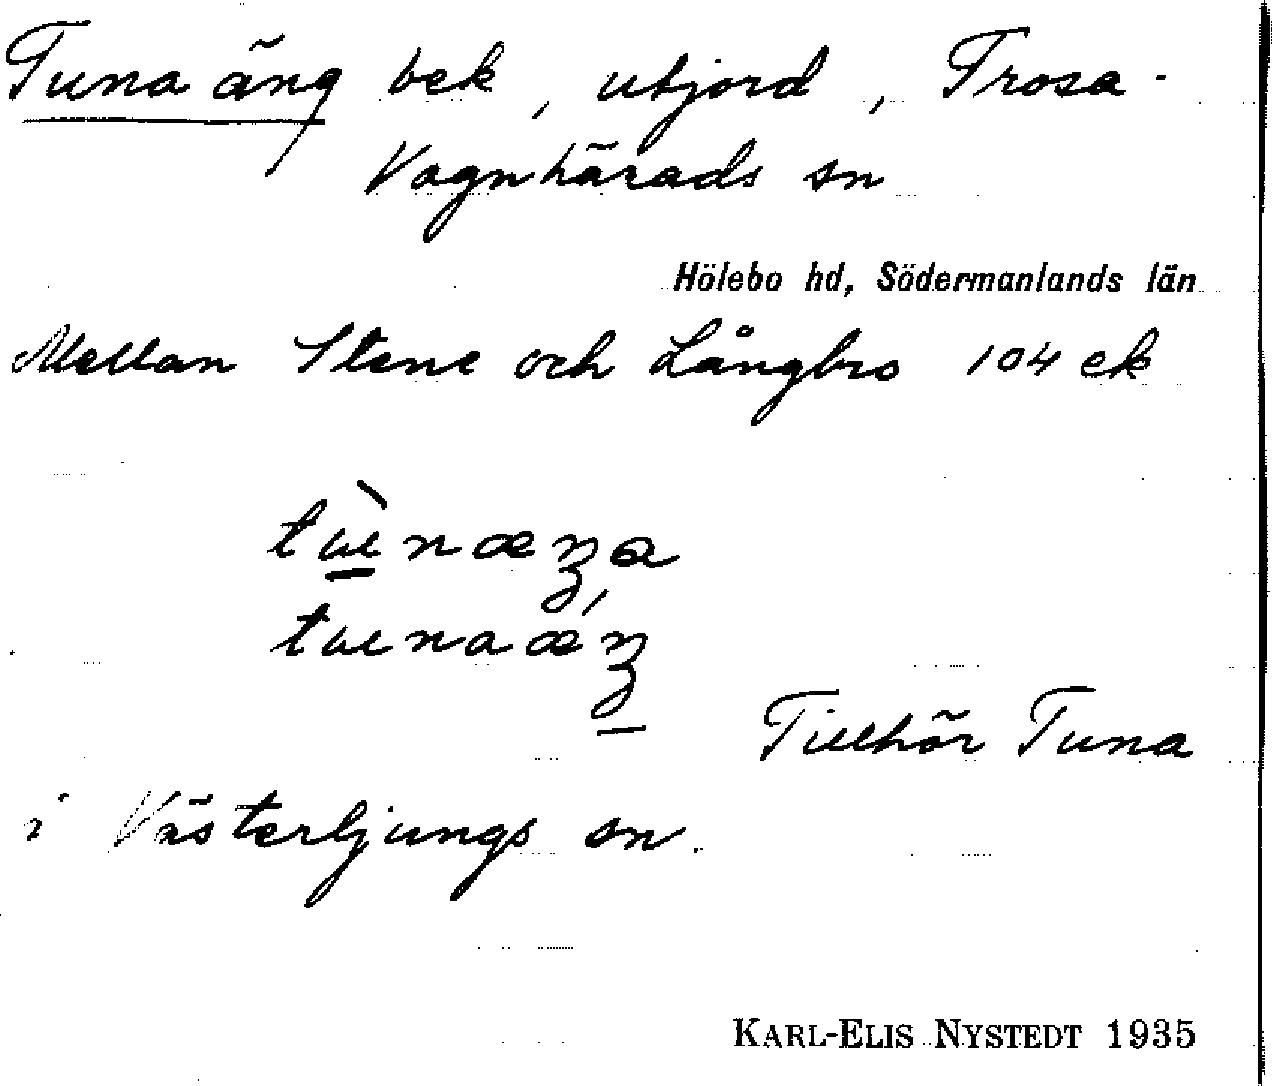 Tuna äng bek, utjord, Trosa-
Vagnhärads sn
Hölebo hd, Södermanlands län
Mellan Stene och Långbro 104 ek
tɯ̀næŋa
tɯnaǽŋ
Tillhör Tuna
i Västerljungs sn.
KARL-ELIS NYSTEDT 1935